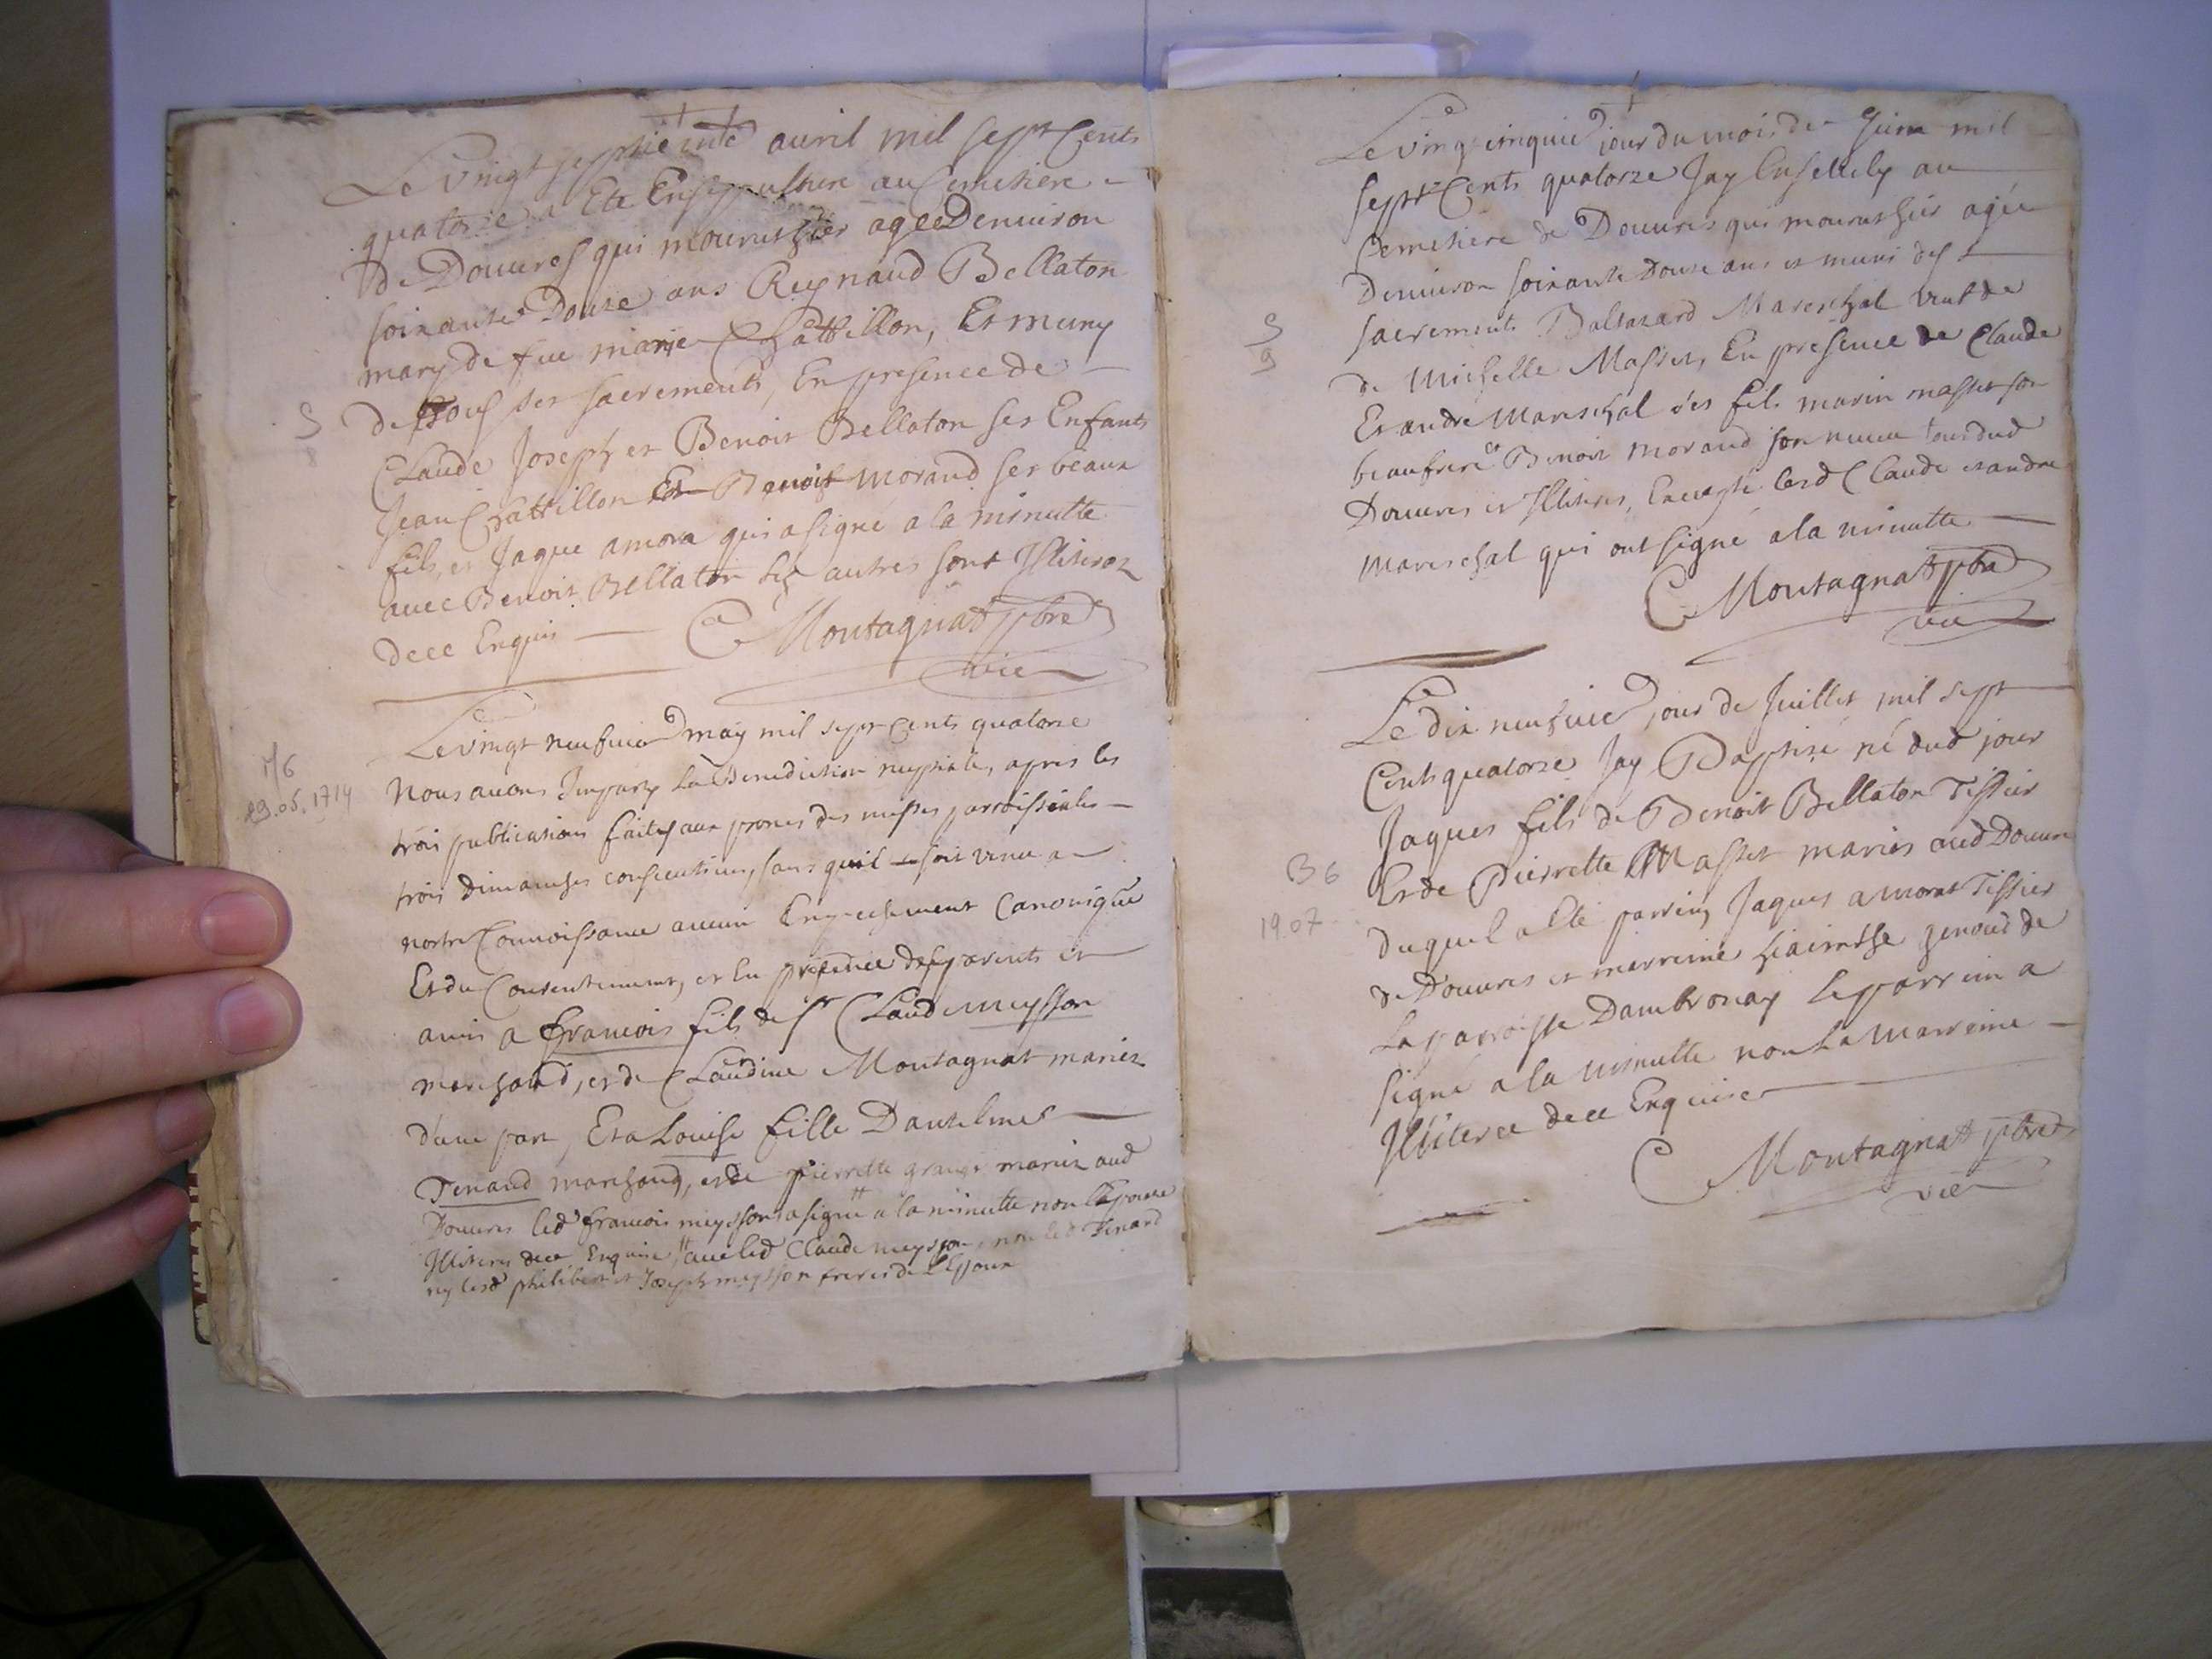 Le vingt septie auril mil sept Cents
quatorze a Ete Ensepulture au Cemetiere
de Douures qui mourut hier agee Denuiron
soixante Douze ans Reynaud Bellaton
mary de fue marie Chattillon, Et muny
de tous ses sacrements, En presence de
Claude Joseph et Benoit Bellaton ses Enfants
Jean Chattillon Et Benoit Morand ses beaux
fils, et Jaque amora qui a signé a la minutte
auec Benoit Bellaton les autres sont Illiterez
dece Enquis
C Montagnat pbre
vic
Le vingt neufuie may mil sept Cents quatorze
Nous auons Imparty la Benediction nuptiale, apres les
trois publications faites aux prones des messes parroissiales
trois dimanches consecutiues, sans quil soit venu a
nostre Connoissance aucun Empechement Canonique
Et du Consentement, et En presence des parents et
amis a francois fils de sr Claude meysson
marchand, et de Claudine Montagnat mariez
d'une part, Et a Louise fille Dantelme
Tenand marchand, et de pierrette mariez aud
Douures led francois meysson a signé a la minutte non l'Epouse
Illiteree dece Enquise auec led Claude meysson, non led Tenand
ny lesd philibert et Joseph meysson freres de l'Epoux
S
8
M6
29.05.1714
Le vingt cinquie jour du mois de Juin mil
sept Cents quatorze Jay Ensevely au
Cemetiere de Douures qui mourut hier agée
Denuiron soixante Douze ans et muni des
sacrements Baltazard Mareschal veuf de
de Michelle Masset, En presence de Claude
Et andre Mareschal ses fils marin masset son
beaufrere et Benoit morand son neueu tous dud
Douures et Illiteres, Excepté lesd Claude et andre
mareschal qui ont signé a la minutte
C Montagnat pbre
vic
S
9
Le dix neufuie jour de Juillet mil sept
Cents quatorze Jay Baptisé né dud jour
Jaques fils de Benoit Bellaton Tissier
Et de Pierrette Masset mariés aud Douures
duquel a Eté parrin Jaques amorat Tissier
de Douures et marreine genoud de
La parroisse Dambronay le parrein a
signé a la minutte non La Marreine
Illiteree dece Enquise
C Montagnat pbre
vic
B6
19.07